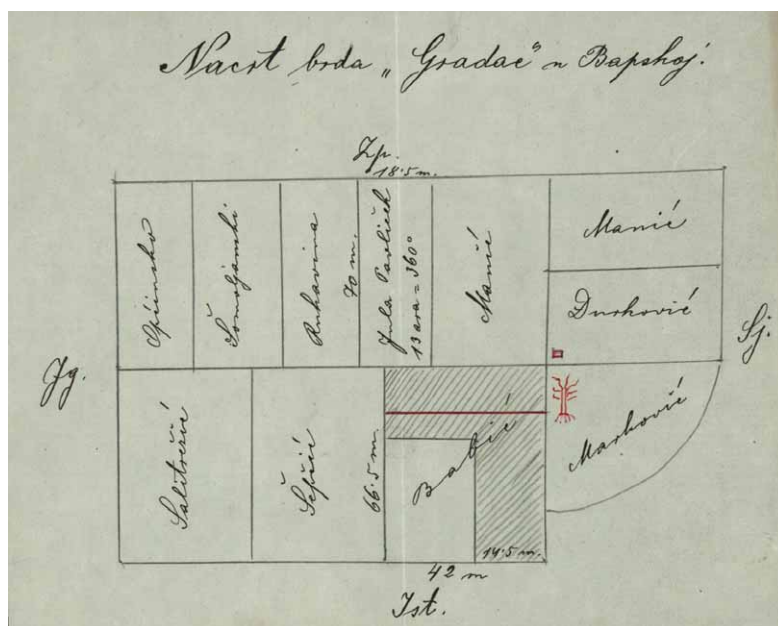 Nacrt brda „Gradac“ u Bapskoj.
Zp.
18·5 m.
Općinsko
Šomodjanski
Rukavina
70 m.
Jula Pavliček
13 ara = 360°
Manić
Manić
Durković
Sj.
Jg.
Salitrežić
Šepšić
66·5 m.
Babić
Marković
14·5 m.
42 m
Ist.